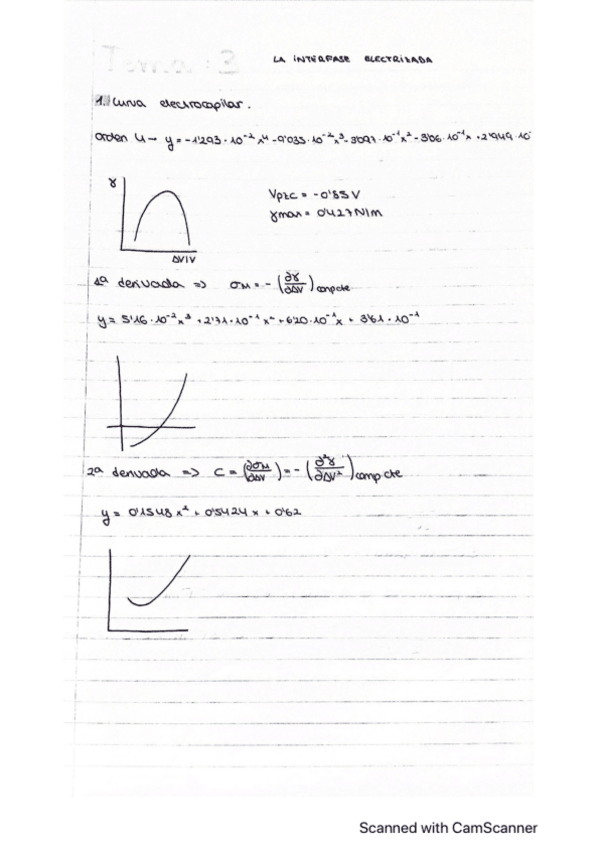 LA INTERFASE ELECTRIZADA
1. Curva electrocapilar.
Orden 4 → y = -1'293·10⁻² x⁴ -9'035·10⁻² x³ -3'097·10⁻¹ x² -3'06·10⁻¹ x +2'949·10
γ
Vpzc = -0'85 V
γmax = 0'427 N/m
ΔV/V
1ª derivada => σM = - (∂γ/∂ΔV) comp cte
y = 5'16·10⁻² x³ + 2'71·10⁻¹ x² + 6'20·10⁻¹ x + 3'61·10⁻¹
2ª derivada => C = (∂σM/∂ΔV) = - (∂²γ/∂ΔV²) comp cte
y = 0'1548 x² + 0'5424 x + 0'62
Scanned with CamScanner